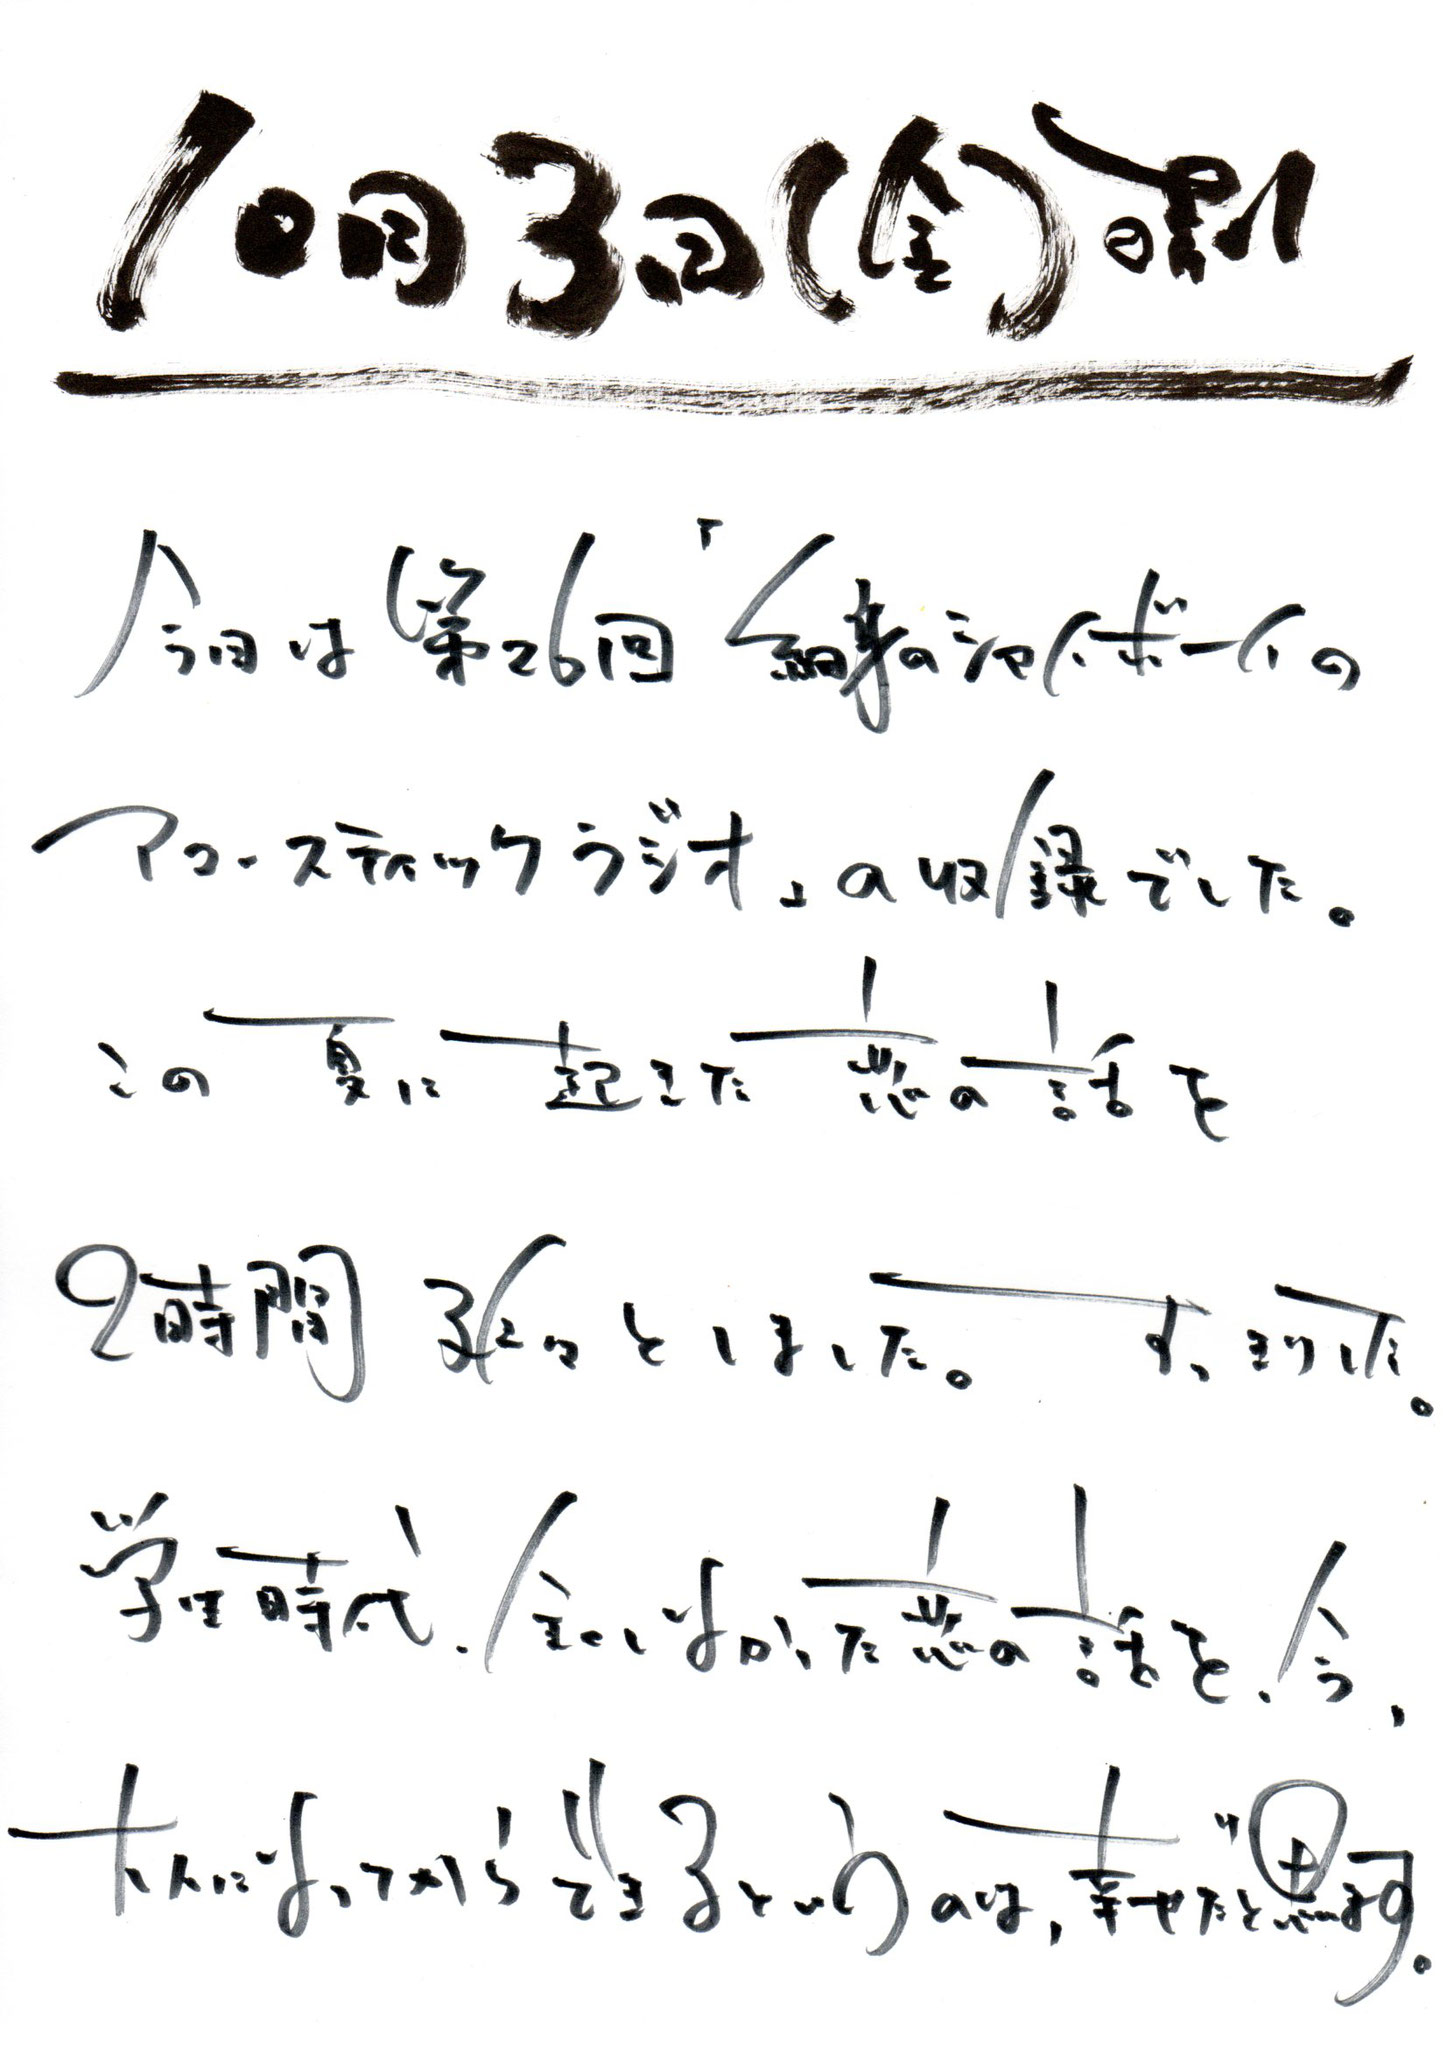 10月3日(金)晴れ
今日は第26回「細身のシャイボーイの
アコースティックラジオ」の収録でした。
この夏に起きた恋の話を
2時間延々としました。 すっきりした。
学生時代、全くしなかった恋の話を、今、
大人になってからできるというのは、幸せだと思います。